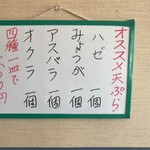 オススメ天ぷら
ハゼ 一個
みょうが 一個
アスパラ 一個
オクラ 一個
四種一皿で